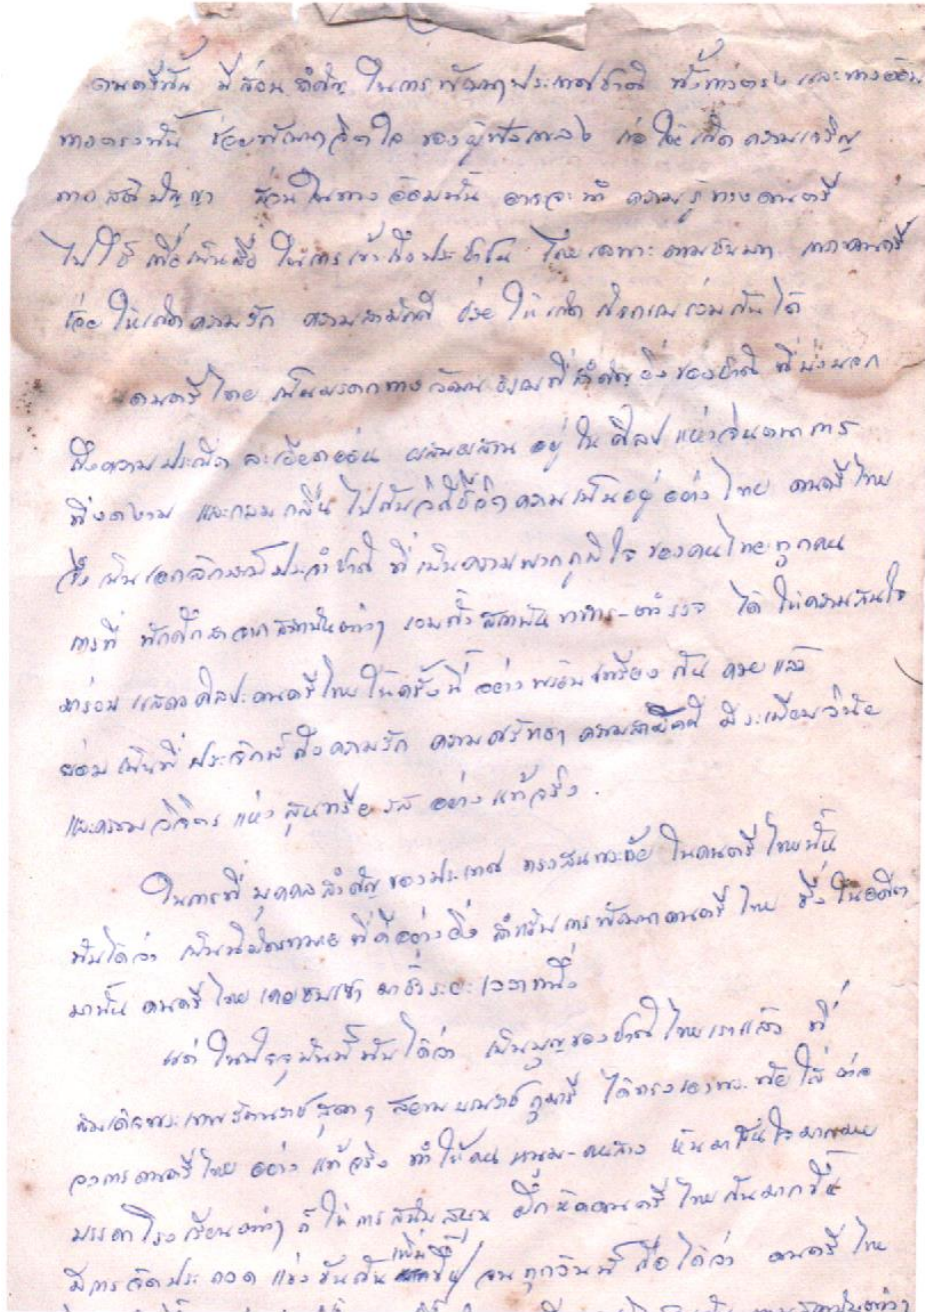 ดนตรีนั้น มีส่วนสำคัญ ในการพัฒนาประเทศชาติ ทั้งทางตรง และทางอ้อม
ทางตรงนั้น ช่วยพัฒนาจิตใจ ของผู้ฟังเพลง ก่อให้เกิด ความเจริญ
ทางสติปัญญา ส่วนในทางอ้อมนั้น อาจจะนำ ความรู้ทางดนตรี
ไปใช้ เพื่อเป็นสื่อ ในการเข้าถึงประชาชน โดยเฉพาะ ตามชนบท เพราะดนตรี
ช่วยให้เกิดความรัก ความสามัคคี ช่วยให้เกิด กิจกรรมร่วมกันได้
ดนตรีไทย เป็นมรดกทางวัฒนธรรมที่สำคัญยิ่งของชาติ ที่บ่งบอก
ถึงความประณีต ละเอียดอ่อน ผสมผสาน อยู่ใน ศิลปแห่งจินตนาการ
ที่งดงาม และกลมกลืน ไปกับวิถีชีวิตความเป็นอยู่อย่างไทย ดนตรีไทย
จึงเป็นเอกลักษณ์ประจำชาติ ที่เป็นความพากภูมิใจ ของคนไทยทุกคน
การที่ นักศึกษาจากสถาบันต่างๆ รวมทั้งสถาบันทหาร-ตำรวจ ได้ให้ความสนใจ
มาร่วมแสดงศิลปะดนตรีไทยในครั้งนี้ อย่างพร้อมเพรียงกัน ด้วยแล้ว
ย่อมเป็นที่ประจักษ์ถึงความรัก ความศรัทธา ความสามัคคี มีระเบียบวินัย
และความวิจิตร แห่งสุนทรียรส อย่างแท้จริง.
ในการที่ บุคคลสำคัญของประเทศ ทรงสนพระทัย ในดนตรีไทยนั้น
นับได้ว่า เป็นนิมิตหมาย ที่ดีอย่างยิ่ง สำหรับการพัฒนาดนตรีไทย ซึ่งในอดีต
มานั้น ดนตรีไทยเคยซบเซา มาชั่วระยะเวลาหนึ่ง
แต่ในปัจจุบันนี้นับได้ว่า เป็นบุญของชาติไทยเราแล้ว ที่
สมเด็จพระเทพรัตนราชสุดาฯ สยามบรมราชกุมารี ได้ทรงเอาพระทัยใส่ ต่อ
วงการดนตรีไทย อย่างแท้จริง ทำให้คนหนุ่ม-คนสาว หันมาสนใจมากมาย
บรรดาโรงเรียนต่างๆ ก็ให้การสนับสนุน ฝึกหัดดนตรีไทยกันมากขึ้น
มีการจัดประกวด แข่งขันกันเพิ่มขึ้น จนทุกวันนี้ ถือได้ว่า ดนตรีไทย